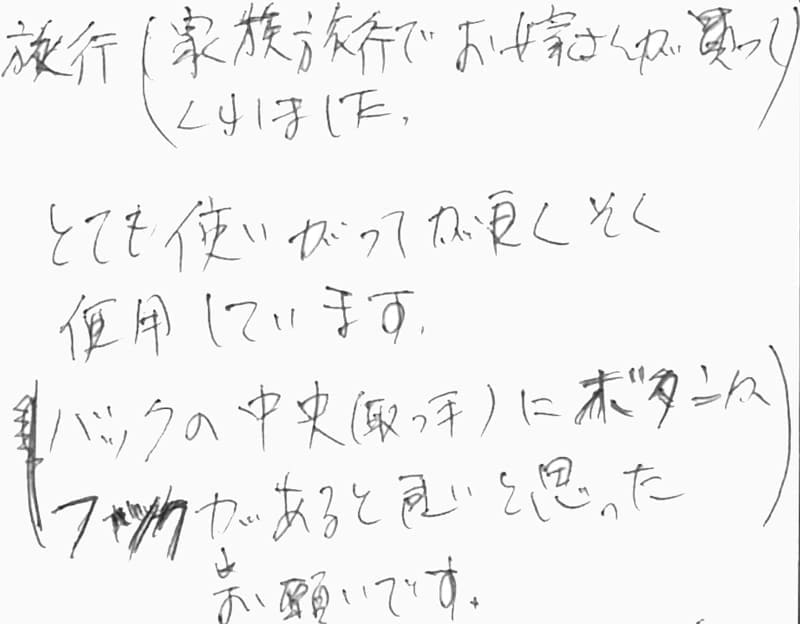 旅行(家族旅行でお嫁さんが買って
くれました。)
とても使いがってが良くそく
使用しています。
(バックの中央(取っ手)にボタン又
フックがあると良いと思った
お願いです。